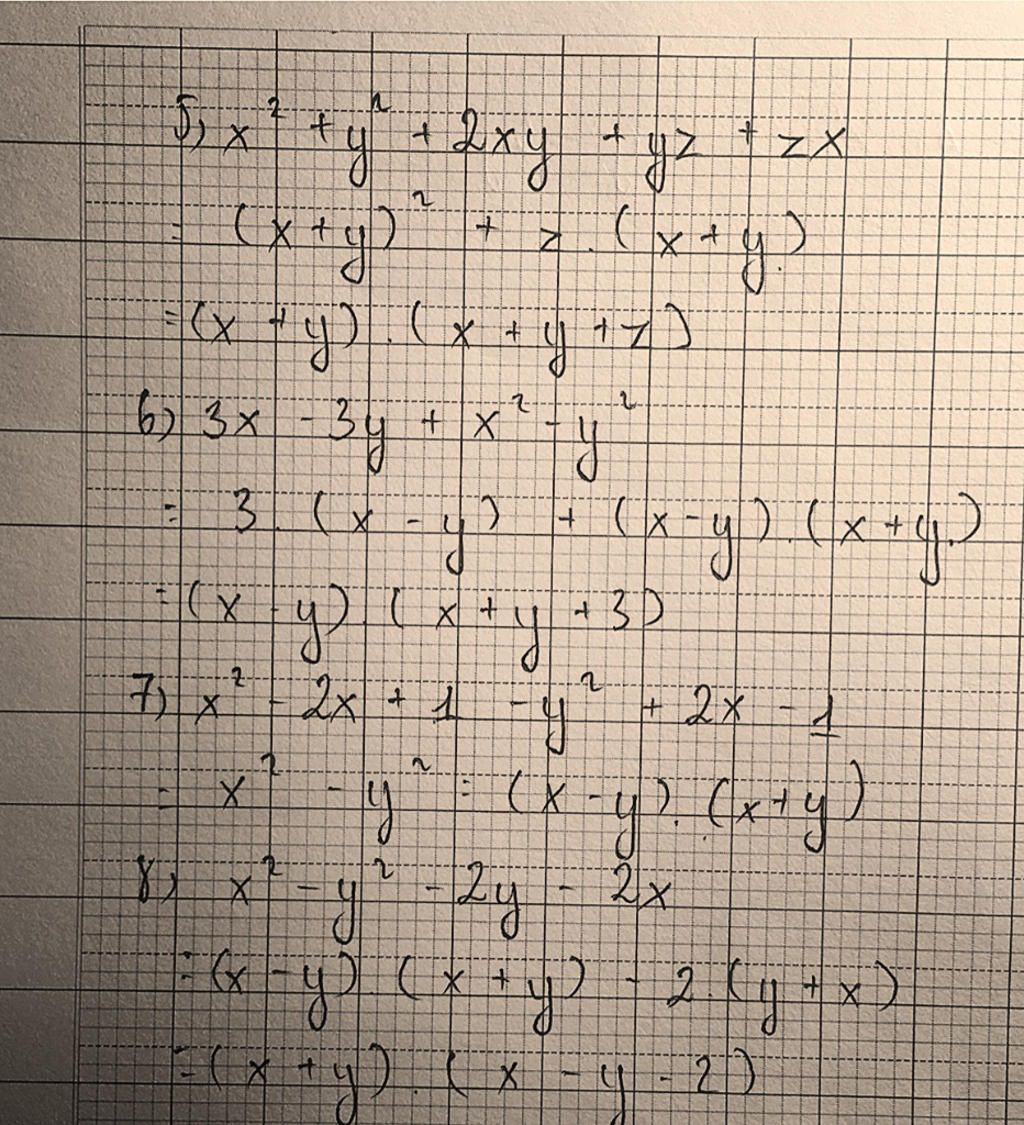 5) x² + y² + 2xy + yz + zx
= (x + y)² + z.(x + y)
= (x + y).(x + y + z)
6) 3x - 3y + x² - y²
= 3.(x - y) + (x - y).(x + y)
= (x - y).(x + y + 3)
7) x² - 2x + 1 - y² + 2x - 1
= x² - y² = (x - y).(x + y)
8) x² - y² - 2y - 2x
= (x - y).(x + y) - 2.(y + x)
= (x + y).(x - y - 2)